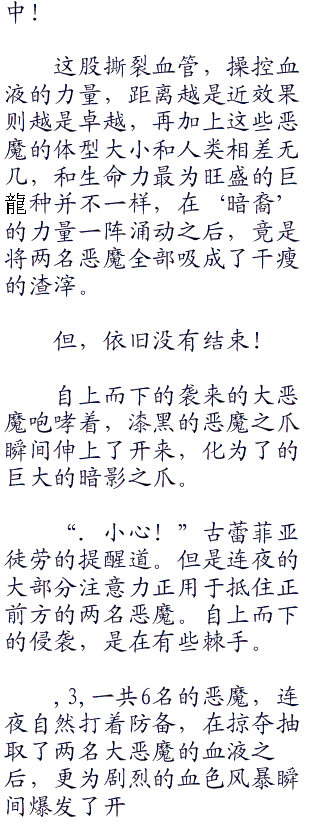 中！
这股撕裂血管，操控血
液的力量，距离越是近效果
则越是卓越，再加上这些恶
魔的体型大小和人类相差无
几，和生命力最为旺盛的巨
龍种并不一样，在‘暗裔’
的力量一阵涌动之后，竟是
将两名恶魔全部吸成了干瘦
的渣滓。
但，依旧没有结束！
自上而下的袭来的大恶
魔咆哮着，漆黑的恶魔之爪
瞬间伸上了开来，化为了的
巨大的暗影之爪。
“．小心！”古蕾菲亚
徒劳的提醒道。但是连夜的
大部分注意力正用于抵住正
前方的两名恶魔。自上而下
的侵袭，是在有些棘手。
,3,一共6名的恶魔，连
夜自然打着防备，在掠夺抽
取了两名大恶魔的血液之
后，更为剧烈的血色风暴瞬
间爆发了开